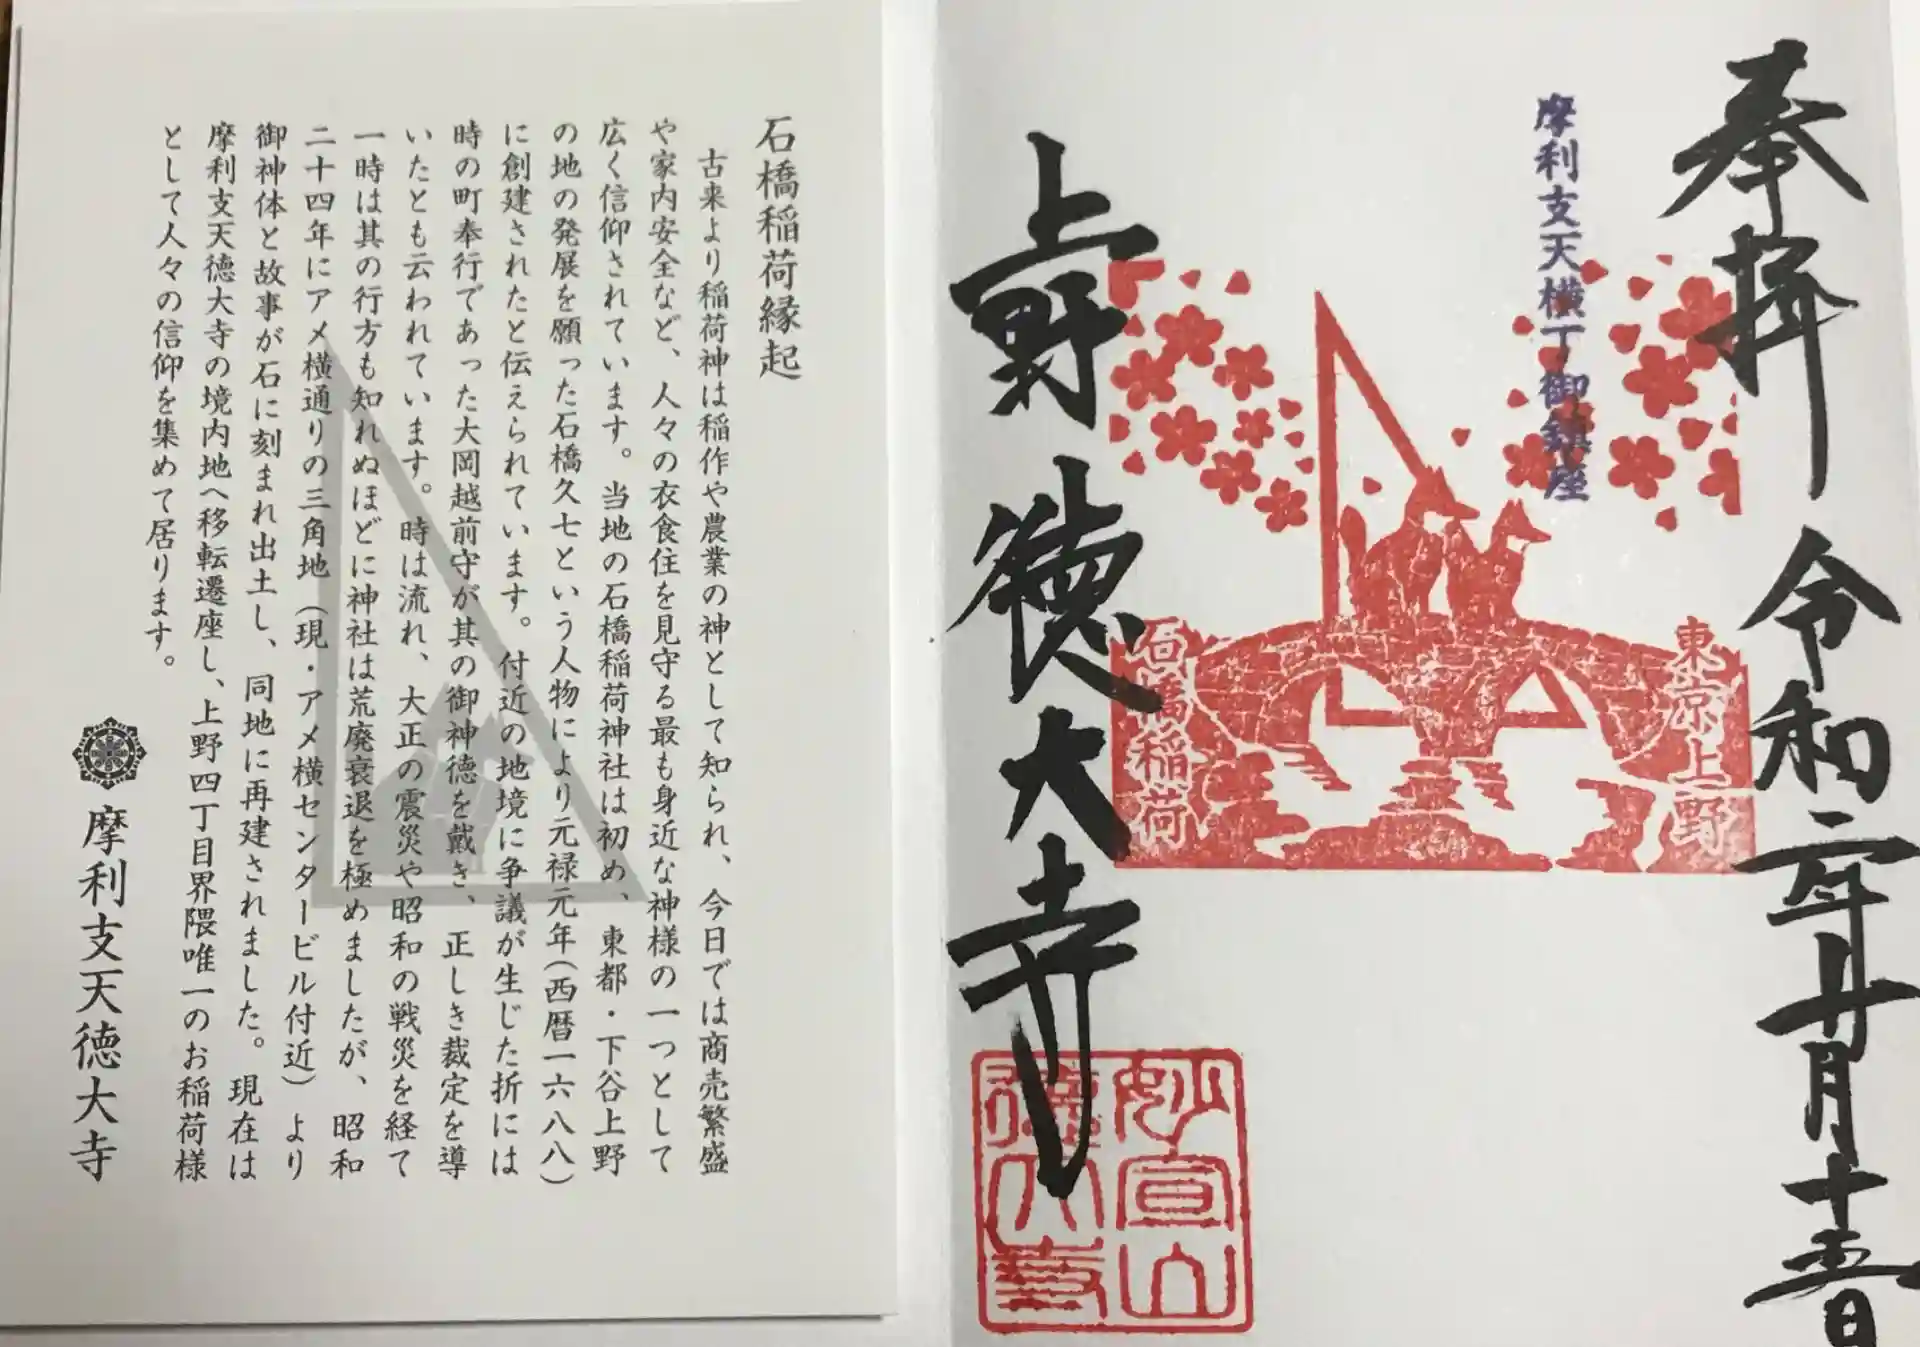 石橋稲荷縁起
古来より稲荷神は稲作や農業の神として知られ、今日では商売繁盛
や家内安全など、人々の衣食住を見守る最も身近な神様の一つとして
広く信仰されています。当地の石橋稲荷神社は初め、東都・下谷上野
の地の発展を願った石橋久七という人物により元禄元年(西暦一六八八)
に創建されたと伝えられています。付近の地境に争議が生じた折には
時の町奉行であった大岡越前守が其の御神徳を戴き、正しき裁定を導
いたとも云われています。時は流れ、大正の震災や昭和の戦災を経て
一時は其の行方も知れぬほどに神社は荒廃衰退を極めましたが、昭和
二十四年にアメ横通りの三角地(現・アメ横センタービル付近)より
御神体と故事が石に刻まれ出土し、同地に再建されました。現在は
摩利支天徳大寺の境内地へ移転遷座し、上野四丁目界隈唯一のお稲荷様
として人々の信仰を集めて居ります。
摩利支天徳大寺
奉拝 令和二年
月十
日
摩利支天横丁御鎮座
東京上野
石橋稲荷
上野 徳大寺
妙宣山
徳大寺